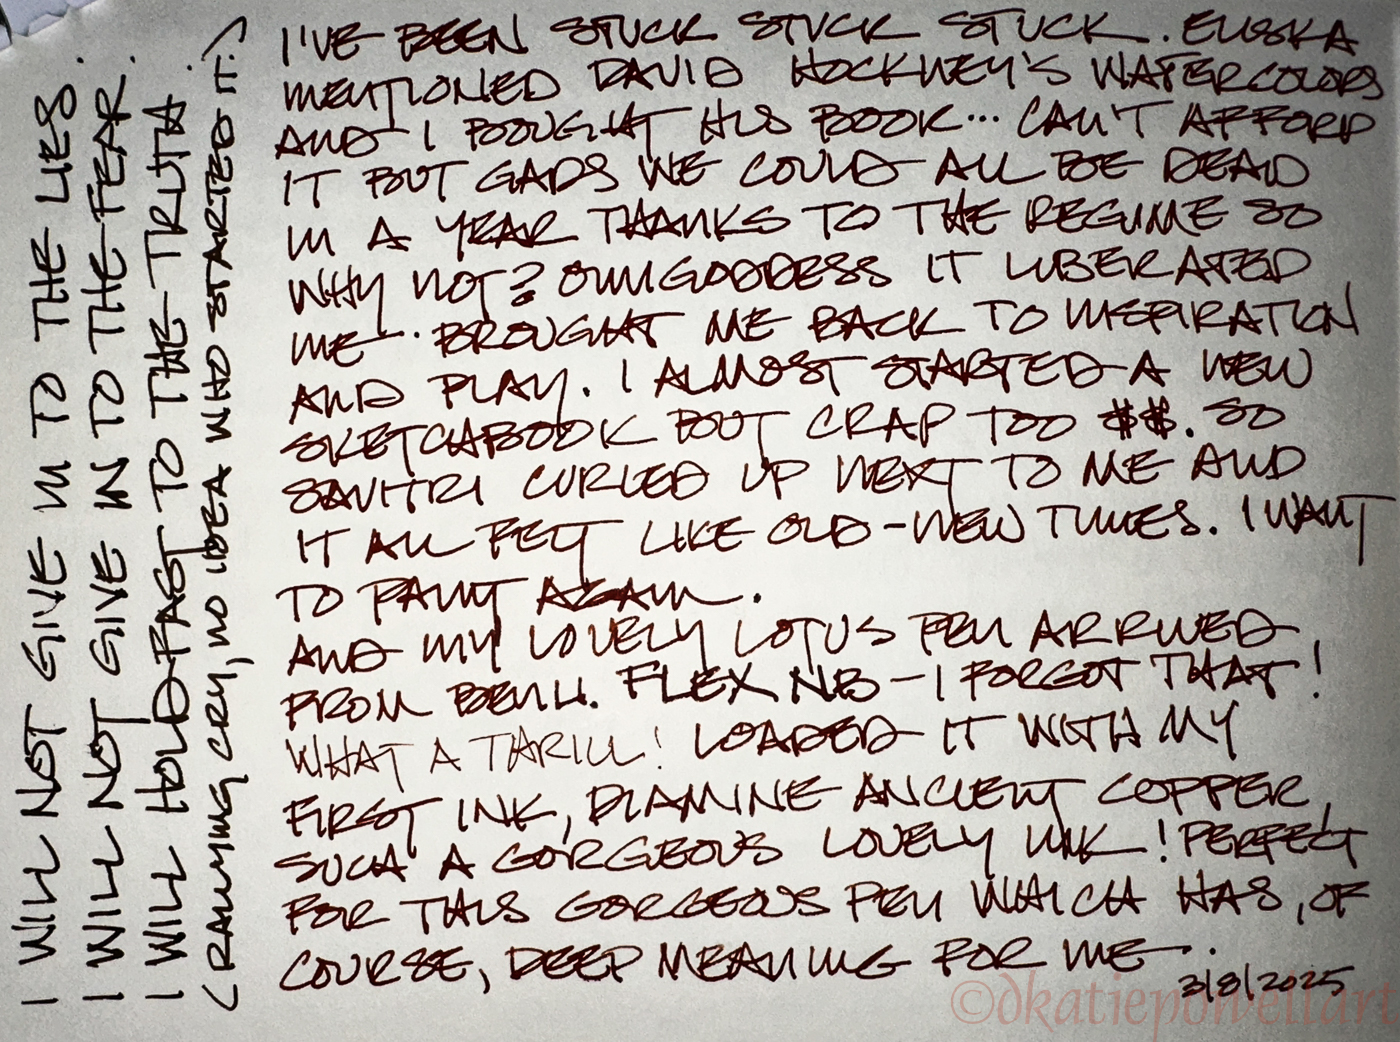 I'VE BEEN STUCK STUCK STUCK. ELISKA
MENTIONED DAVID HOCKNEY'S WATERCOLORS
AND I BOUGHT HIS BOOK... CAN'T AFFORD
IT BUT GADS WE COULD ALL BE DEAD
IN A YEAR THANKS TO THE REGIME SO
WHY NOT? OMIGODDESS IT LIBERATED
ME. BROUGHT ME BACK TO INSPIRATION
AND PLAY. I ALMOST STARTED A NEW
SKETCHBOOK BUT CRAP TOO $$. SO
SAVITRI CURLED UP NEXT TO ME AND
IT ALL FELT LIKE OLD-NEW TIMES. I WANT
TO PAINT AGAIN.
AND MY LOVELY LOTUS PEN ARRIVED
FROM BENU. FLEX NIB - I FORGOT THAT!
WHAT A THRILL! LOADED IT WITH MY
FIRST INK, DIAMINE ANCIENT COPPER,
SUCH A GORGEOUS LOVELY INK! PERFECT
FOR THIS GORGEOUS PEN WHICH HAS, OF
COURSE, DEEP MEANING FOR ME...
3/8/2025
I WILL NOT GIVE IN TO THE LIES.
I WILL NOT GIVE IN TO THE FEAR.
I WILL HOLD FAST TO THE TRUTH.
(RALLYING CRY, NO IDEA WHO STARTED IT.)
©dkatiepowellart